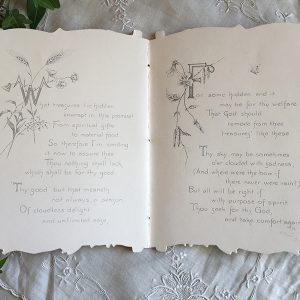 W
get treasures lie hidden
enwrapt in this promise!
From spiritual gifts
to material food.
So therefore I'm sending
it now to assure thee
Thou nothing shalt lack,
which shall be for thy good.
Thy good but that meaneth
not always, a season
Of cloudless delight
and unlimited ease,
For some hidden end it
may be for thy welfare
That God should
remove from thee
"treasures" like these
Thy sky may be sometimes
o'er clouded with sadness,
(And where were the bow if
there never were rain?)
But all will be right if
with purpose of spirit
Thou seek for thy God,
and take comfort again.